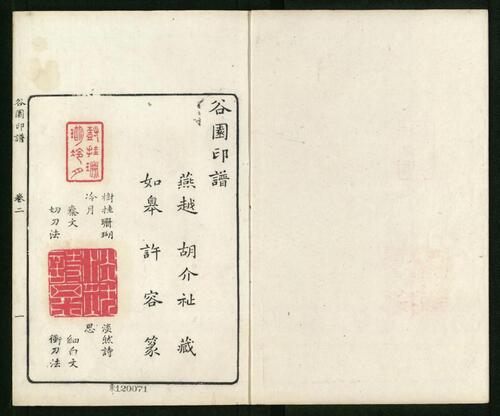 谷園印譜
燕越 胡介祉 藏
如皋 許容 篆
樹桂珊瑚
冷月
秦文
切刀法
淡然詩
思
細白文
衝刀法
谷園印譜 卷二 一
120071